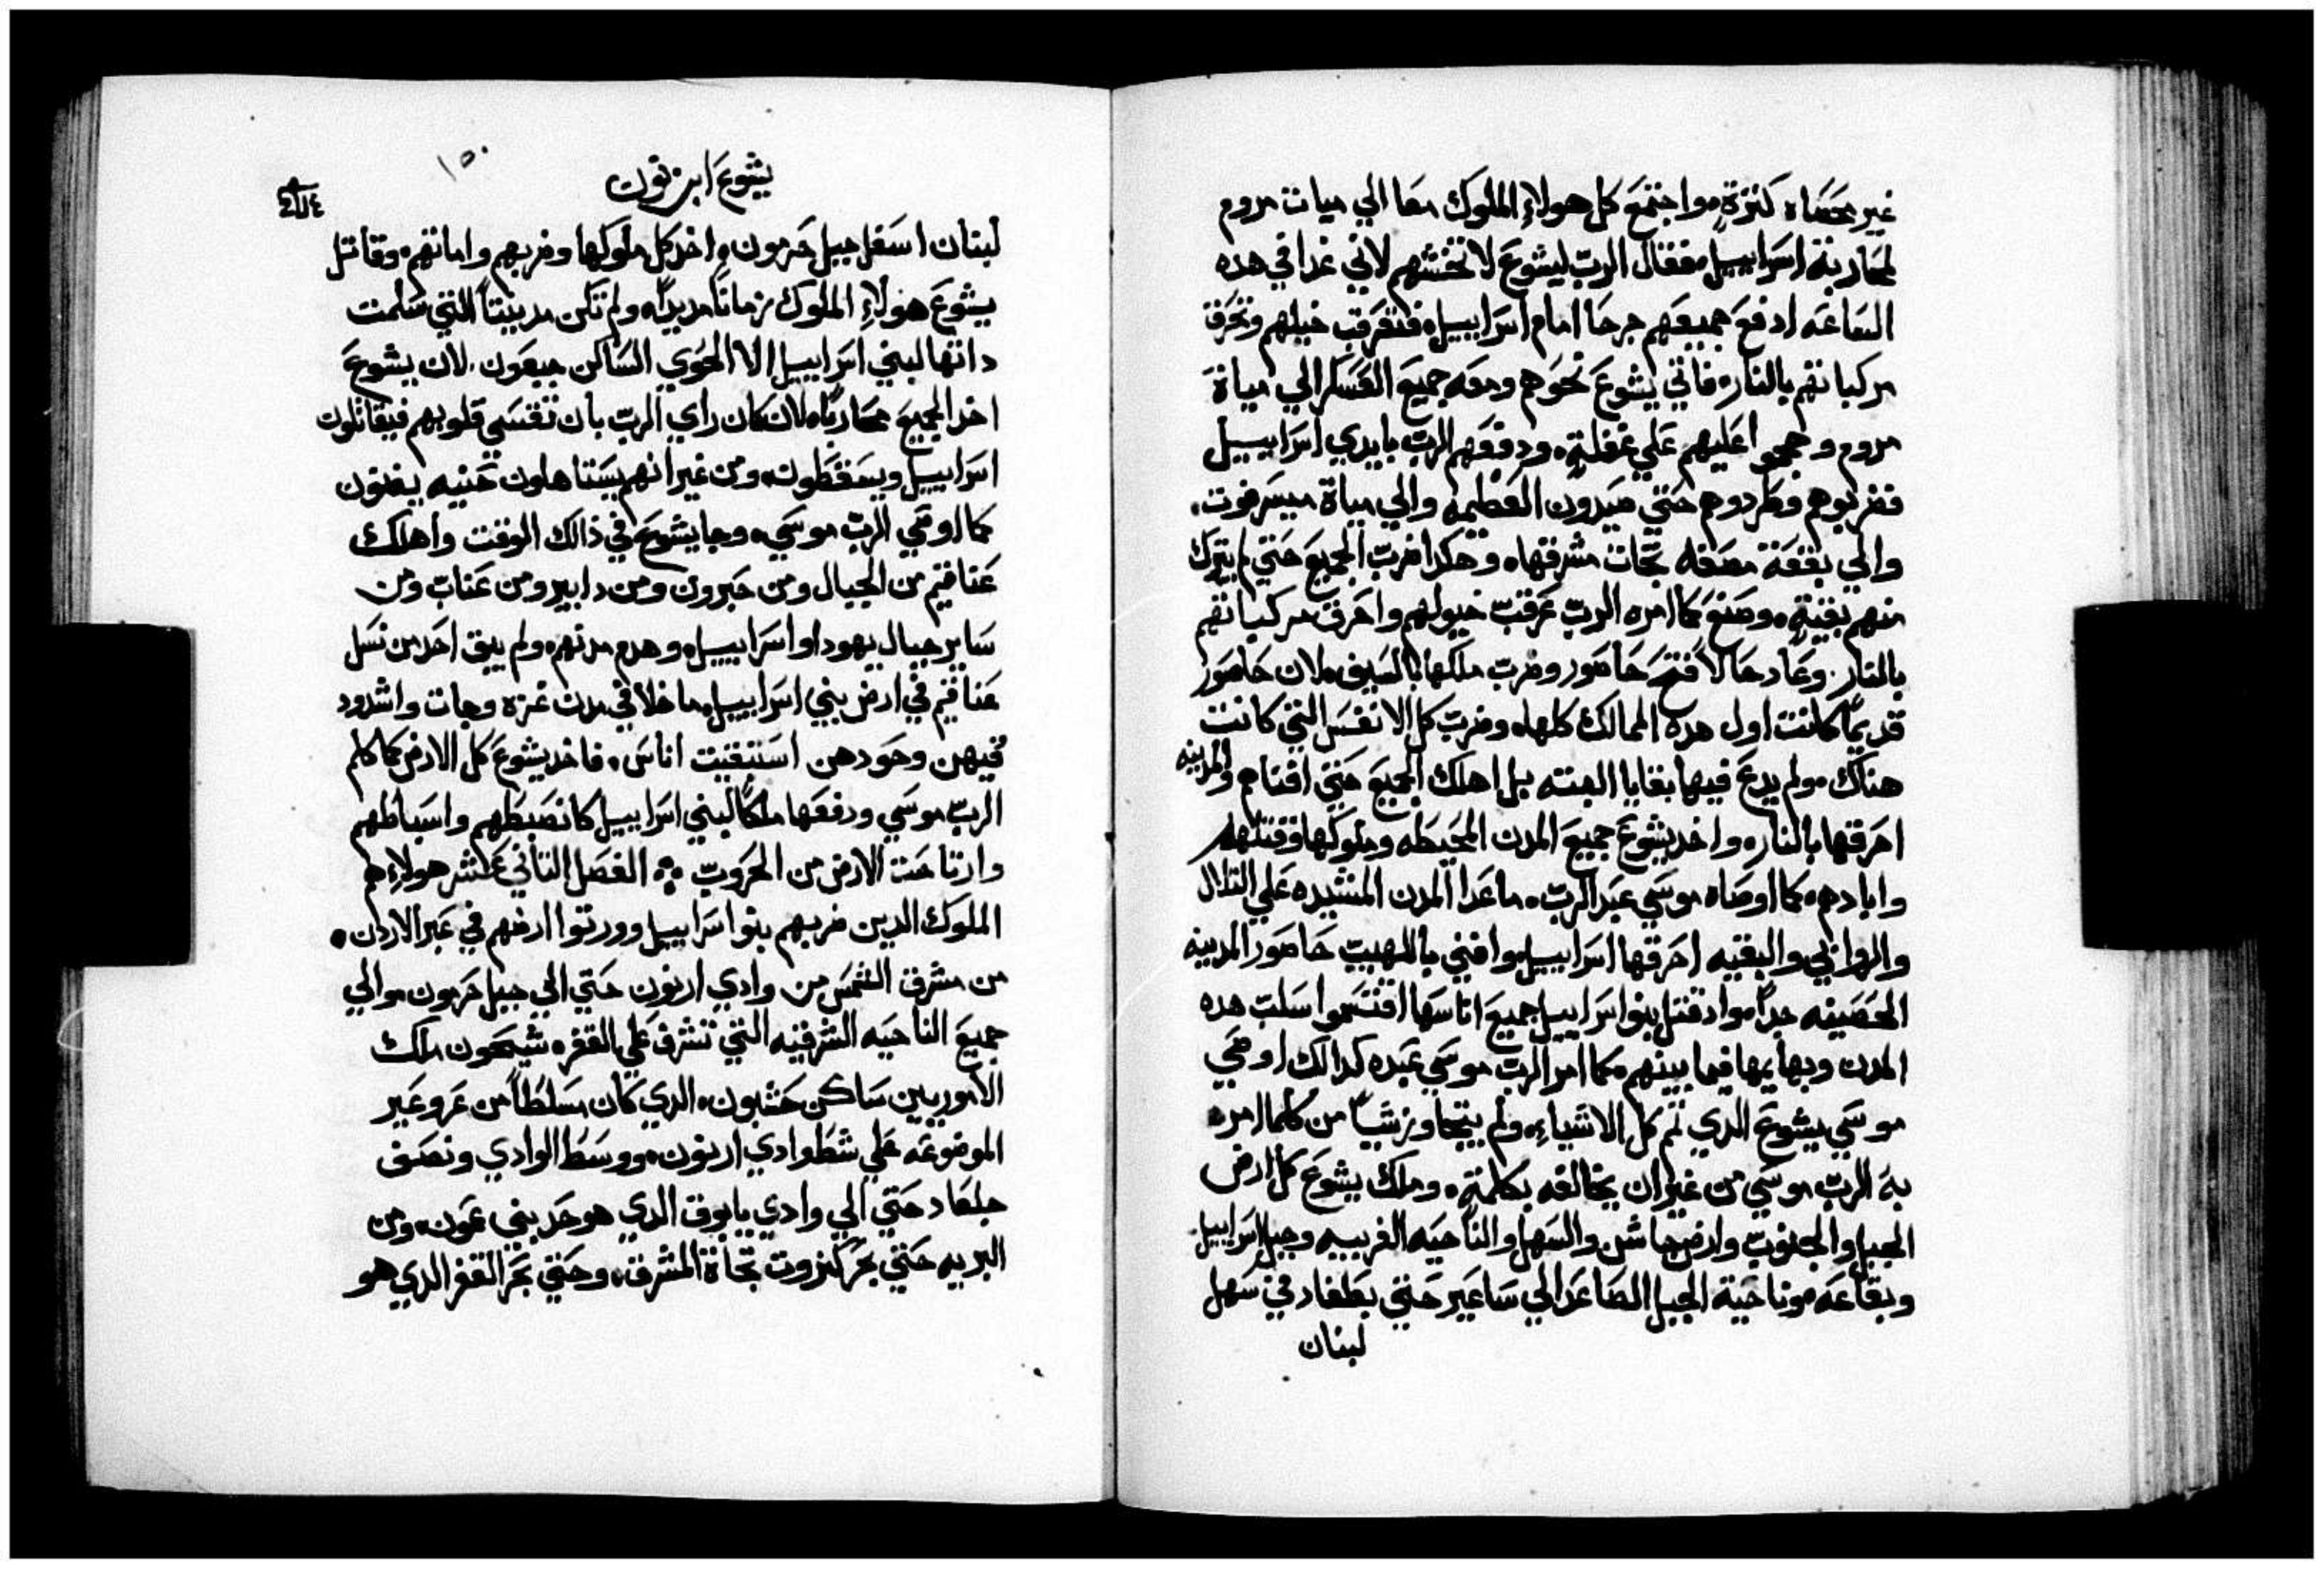 غير محصاه كثرة، واجتمع كل هولاءِ الملوك معا الي ميات مروم
لمحاربة اسراييل، فقال الرب ليشوع لا تخشهم لاني غدا في هده
الساعه ادفع جميعهم جرحا امام اسراييل، فتعرقب خيلهم وتحرق
مركباتهم بالنار، فاتي يشوع نحوهم ومعه جميع العسكر الي مياة
مروم وهجموا عليهم علي غفلة، ودفعهم الرب بايدي اسراييل
فضربوهم وطردوهم حتي صيدون العظيمه والي مياة ميسرفوت،
والي بقعة مصفه تجات مشرقها، وهكدا ضرب الجميع حتي لم يترك
منهم بقية، وصنع كما امره الرب عرقب خيولهم واحرق مركباتهم
بالنار. وعاد حالاً فتح حاصور وضرب ملكها بالسيف، لان حاصور
قديماً كانت اول هده الممالك كلها، وضرب كل الانفس التي كانت
هناك، ولم يدع فيها بقايا البته بل اهلك الجميع حتي افناهم والمدينه
احرقها بالنار، واخد يشوع جميع المدن المحيطه وملوكها وقتلهم
وابادهم، كما اوصاه موسي عبد الرب، ماعدا المدن المشيده علي التلال
والروابي والبقيه احرقها اسراييل، وافني باللهيب حاصور المدينه
الحصينه جداً، واد قتل بنوا اسراييل جميع اناسها اقتسموا سلب هده
المدن وبهايمها فيما بينهم، كما امر الرب موسي عبده كدالك اوصي
موسي يشوع الدي تمم كل الاشياءِ، ولم يتجاوز شياً من كلما امر
به الرب موسي من غير ان يخالفه بكلمة، وملك يشوع كل ارض
الجبل والجنوب وارض جاشن والسهل والناحيه الغربيه وجبل اسراييل
وبقاعه، وناحية الجبل الصاعد الي ساعير حتي بعلغاد في سهل
لبنان
يشوع ابن نون
١٥٠
لبنان اسفل جبل حرمون، اخد كل ملوكها وضربهم واماتهم، وقاتل
يشوع هولاءِ الملوك زماناً مديداً، ولم تكن مدينتاً التي سلمت
داتها لبني اسراييل الا الحوي الساكن جبعون. لان يشوع
اخد الجميع محارباً، لان كان راي الرب بان تقسي قلوبهم فيقاتلون
اسراييل ويسقطون، ومن غير انهم يستاهلون حنيه يفنون
كما اوصي الرب موسي، وجا يشوع في ذالك الوقت واهلك
عناقيم من الجبال ومن حبرون ومن دابير ومن عناب ومن
ساير جبال يهودا واسراييل، وهدم مدنهم، ولم يبق احد من نسل
عناقيم في ارض بني اسراييل، ما خلا في مدن غزه وجات واشدود
فيهن وحودهن استبقيت اناس، فاخد يشوع كل الارض كما كلم
الرب موسي ودفعها ملكاً لبني اسراييل كانصبطهم واسباطهم
وارتاحت الارض من الحروب ؞ الفصل التاني عشر هولاءِ هم
الملوك الدين ضربهم بنوا اسراييل وورتوا ارضهم في عبر الاردن،
من مشرق الشمس من وادي ارنون حتي الي جبل حرمون، والي
جميع الناحيه الشرقيه التي تشرف علي القفر، شيحون ملك
الاموريين ساكن حشبون، الدي كان مسلطاً من عروعير
الموضوعه علي شط وادي ارنون، ووسط الوادي ونصف
جلعاد حتي الي وادي يابوق الدي هو حد بني عمون، ومن
البريه حتي بحر كنروت تجاة المشرق، وحتي بحر القفر الدي هو